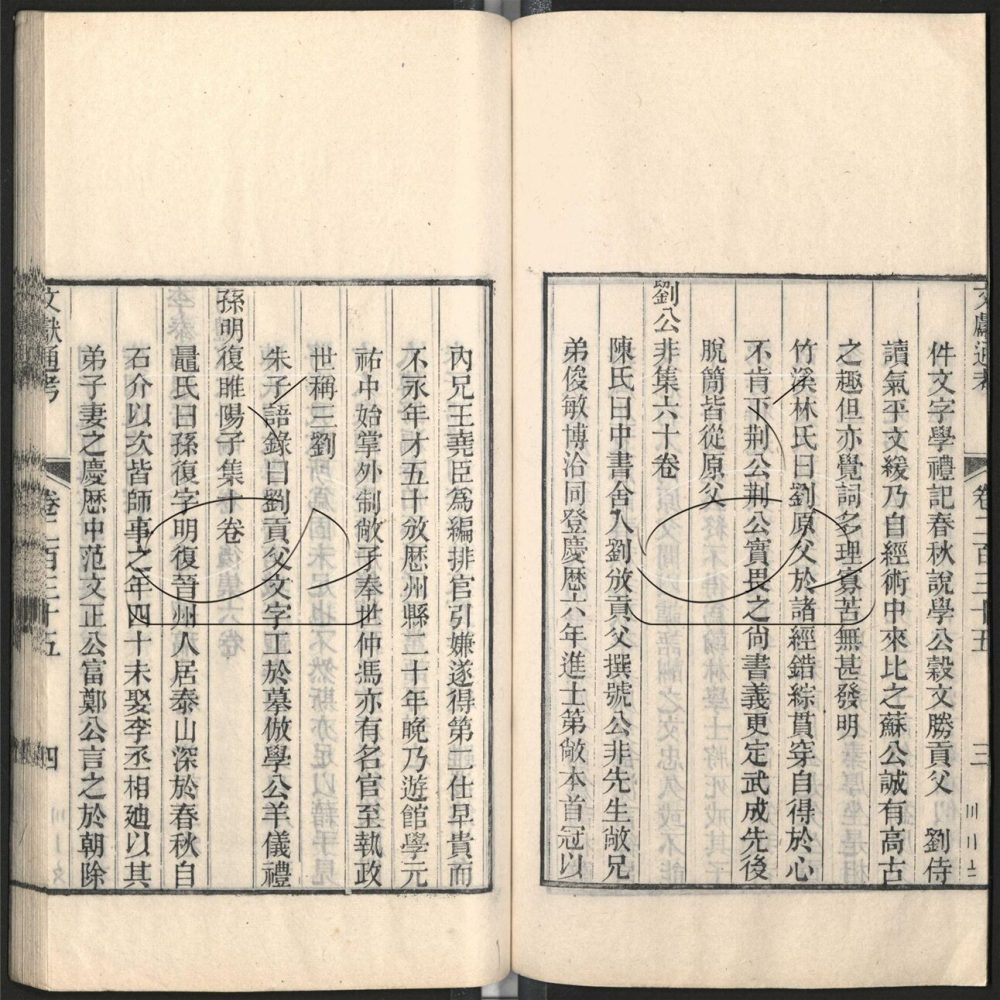 文獻通考 卷二百三十五 三
件文字學禮記春秋說學公穀文勝貢父 劉侍
讀氣平文緩乃自經術中來比之蘇公誠有高古
之趣但亦覺詞多理寡苦無甚發明
竹溪林氏曰劉原父於諸經錯綜貫穿自得於心
不肯下荆公荆公實畏之尚書義更定武成先後
脫簡皆從原父
劉公非集六十卷
陳氏曰中書舍人劉攽貢父撰號公非先生敞兄
弟俊敏博洽同登慶歷六年進士第敞本首冠以
內兄王堯臣為編排官引嫌遂得第二仕早貴而
不永年才五十攽歷州縣二十年晚乃遊館學元
祐中始掌外制敞子奉世仲馮亦有名官至執政
世稱三劉
朱子語錄曰劉貢父文字工於摹倣學公羊儀禮
孫明復睢陽子集十卷
鼂氏曰孫復字明復晉州人居泰山深於春秋自
石介以次皆師事之年四十未娶李丞相廸以其
弟子妻之慶歷中范文正公富鄭公言之於朝除
文獻通考 卷二百三十五 四